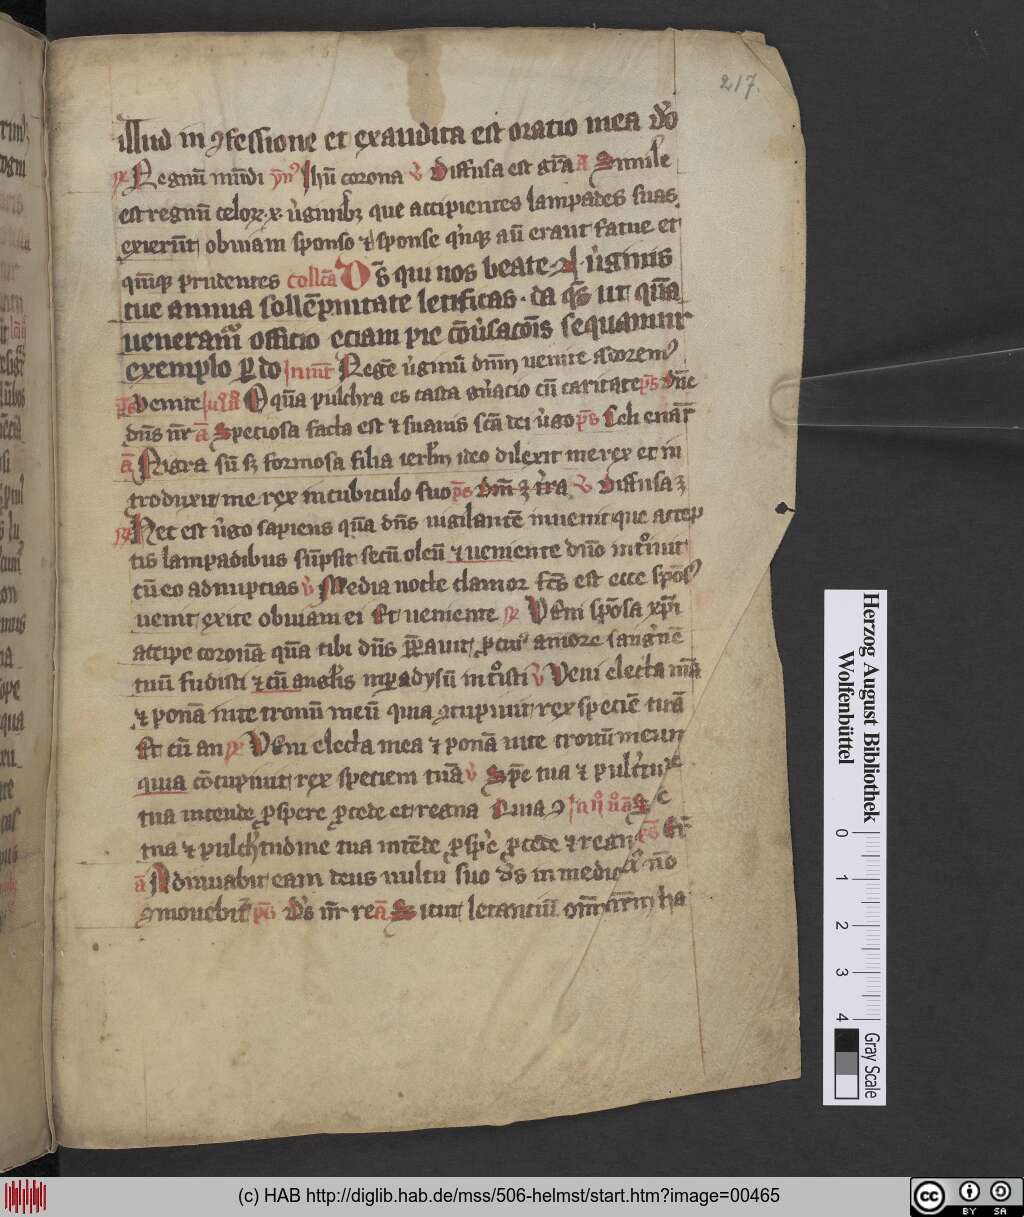 217.
illud in ꝯfessione et exaudita est oratio mea v̓o
R̸ Regnū mūdi ym̄ Ihū corona v̓ Diffusa est grā a̅ Simile
est regnū celoꝝ x v̓ginibꝫ que accipientes lampades suas
exierūt obuiam sponso ⁊ sponse qͥnqꝫ aū erant fatue et
qīnqꝫ prudentes collc̄a Ds̄ qui nos beate N v̓ginis
tue annua sollēpnitate letificas da qs̄ ut quā
ueneramꝰ officio eciam pie cōu̓sacōis sequamur
exemplo ꝑ do Inuit̄ Regē v̓ginū dnm̄ uenite adoremꝰ
ps̄ Venite a̅ O quā pulchra es casta gn̓acio cū caritate ps̄ Dn̄e
dn̄s nr̄ a̅ Speciosa facta est ⁊ suauis scā dei v̓go ps̄ Celi enar̄
a̅ Nigra sū sꝫ formosa filia ierl̄m ideo dilexit me rex et in
troduxit me rex in cubiculo suo ps̄ Dn̄i ꝫ tr̄ra v̓ Diffusa ꝫ
R̸ Hec est v̓go sapiens quā dn̄s uigilantē inuenit que accep
tis lampadibus sūpsit secū oleū ⁊ ueniente dn̄o intͦiuit
cū eo ad nuptias v̓ Media nocte clamor fc̄s est ecce spōsꝰ
uenit exite obuiam ei Et ueniente R̸ Veni spōsa xp̄i
accipe coronā quā tibi dn̄s pp̄auit ꝓ cuiꝰ amore sangͥnē
tuū fudisti ⁊ cū angl̓is in ꝑadysū intͦisti v̓ Veni electa m̄a
⁊ ponā in te tronū meū quia ꝯcupiuit rex speciē tuā
Et cū an R̸ Veni electa mea ⁊ ponā in te tronū meum
quia cōcupiuit rex speciem tuā v̓ Spē tua ⁊ pulc̓tudīe
tua intende ꝓspere ꝓcede et regna Quia ꝯ In ij nͦ a̅ Spē
tua ⁊ pulch̓tudine tua intēde ꝓspe̓ ꝓcede ⁊ regn ps̄ Er̄
a̅ Adiuuabit eam deus uultu suo ds̄ in medio eiꝰ nō
ꝯmouebit̄ ps̄ Ds̄ nr̄ re a̅ Sicut letantiū om̄ nr̄m ha
Herzog August Bibliothek
Wolfenbüttel
0 1 2 3 4
Gray Scale
(c) HAB http://diglib.hab.de/mss/506-helmst/start.htm?image=00465
cc BY SA